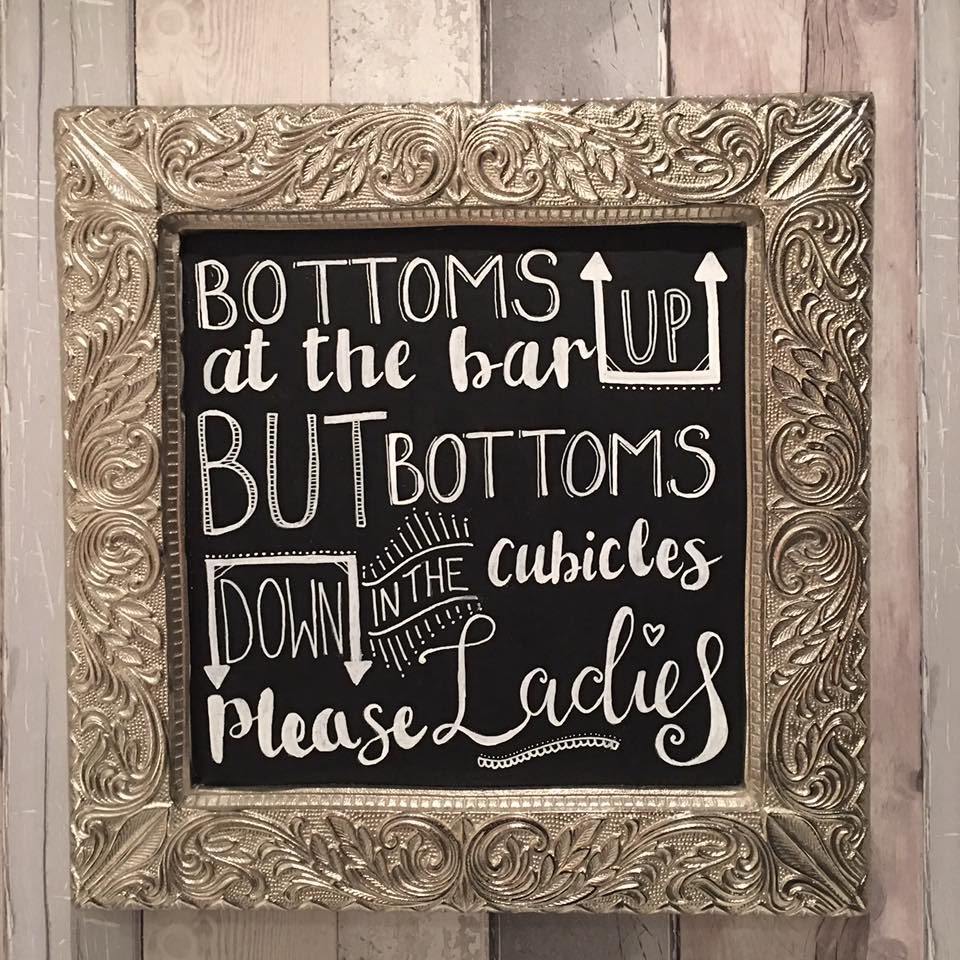 BOTTOMS UP
at the bar
BUT BOTTOMS
DOWN IN THE cubicles
please Ladies